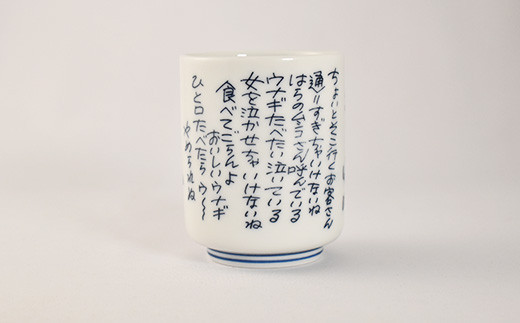 ちょいとそこ行くお客さん
通りすぎちゃいけないね
はちの公さん呼んでいる
ウナギたべたい泣いている
女を泣かせちゃいけないね
食べてごらんよ
おいしいウナギ
ひと口たべたら ウ〜〜
やめられぬ